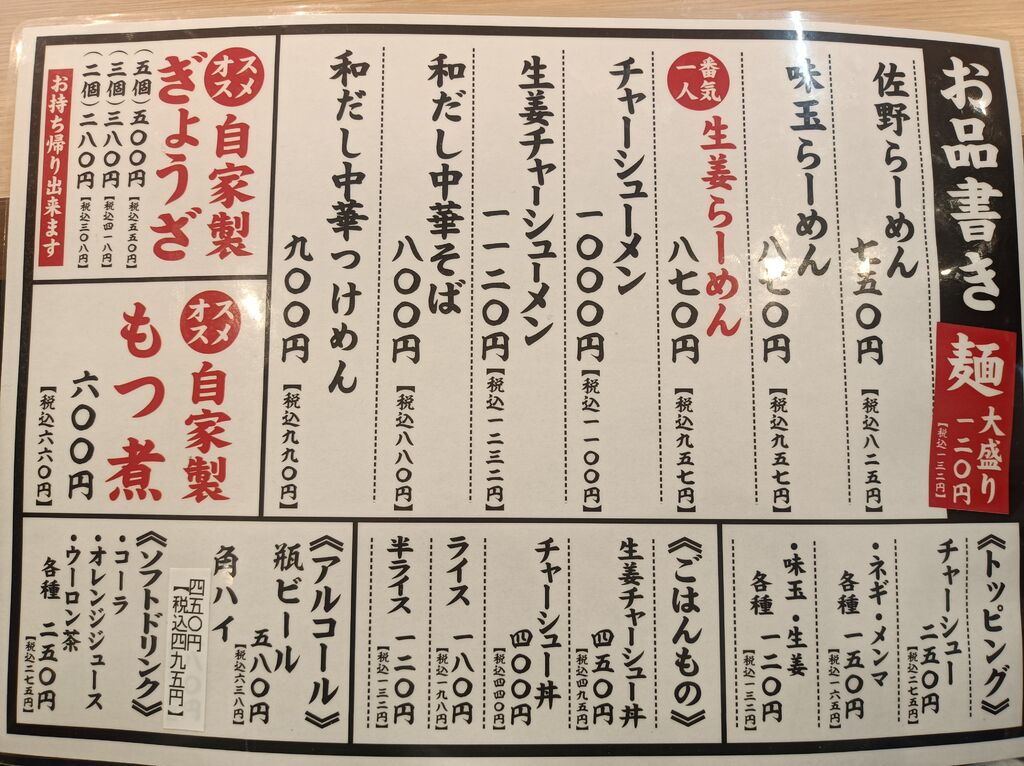 お品書き
麺大盛り
一二〇円
【税込一三二円】
佐野らーめん
七五〇円【税込八二五円】
味玉らーめん
八七〇円【税込九五七円】
一番人気
生姜らーめん
八七〇円【税込九五七円】
チャーシューメン
一〇〇〇円【税込一一〇〇円】
生姜チャーシューメン
一一二〇円【税込一二三二円】
和だし中華そば
八〇〇円【税込八八〇円】
和だし中華つけめん
九〇〇円【税込九九〇円】
オススメ
自家製
ぎょうざ
（五個）五〇〇円【税込五五〇円】
（三個）三八〇円【税込四一八円】
（二個）二八〇円【税込三〇八円】
お持ち帰り出来ます
オススメ
自家製
もつ煮
六〇〇円
【税込六六〇円】
《トッピング》
チャーシュー
二五〇円
【税込二七五円】
・ネギ・メンマ
各種 一五〇円
【税込一六五円】
・味玉・生姜
各種 一二〇円
【税込一三二円】
《ごはんもの》
生姜チャーシュー丼
四五〇円
【税込四九五円】
チャーシュー丼
四〇〇円
【税込四四〇円】
ライス 一八〇円
【税込一九八円】
半ライス 一二〇円
【税込一三二円】
《アルコール》
瓶ビール
五八〇円
【税込六三八円】
角ハイ
四五〇円
【税込四九五円】
《ソフトドリンク》
・コーラ
・オレンジジュース
・ウーロン茶
各種 二五〇円
【税込二七五円】